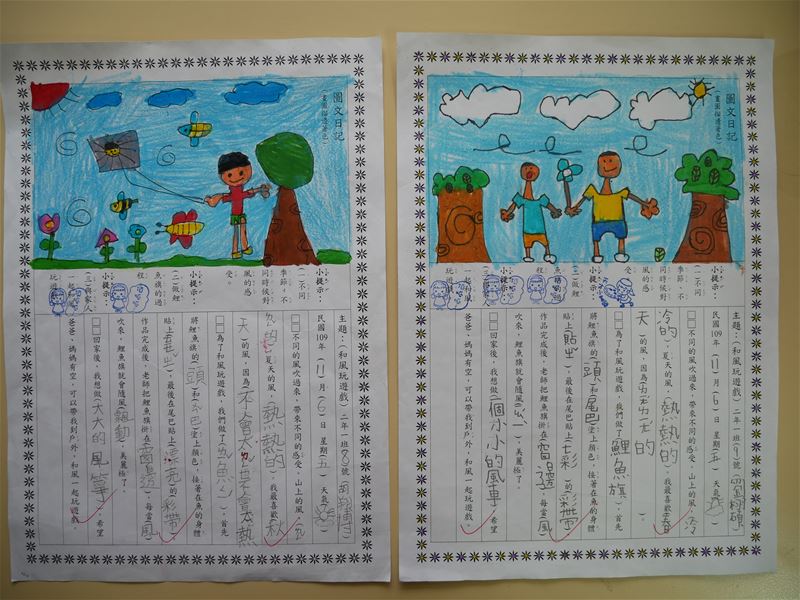 圖文日記
(畫圖描邊著色
小提示：
(一)不同
季節，不
同時候對
風的感
受。
(二)做鯉
魚旗的過
程
(三)與家人
一起和風
玩遊
主題：(和風玩遊戲) 二年一班8號
民國109年(11)月(6)日 星期(五) 天氣
□□不同的風吹過來，帶來不同的感受。山上的風
夏天的風，(熱熱的)，我最喜歡(秋
天)的風，因為(不會太冷也不會太熱
□□為了和風玩遊戲，我們做了 首先
將鯉魚旗的(頭)和 塗上顏色，接著在魚的身體
貼上 最後在尾巴貼上(漂亮)的(彩帶)
作品完成後，老師把鯉魚旗掛在(窗邊)，每當(風)
吹來，鯉魚旗就會隨風(飄動)，美麗極了。
□□回家後，我想做(大大的風箏)，希望
爸爸、媽媽有空，可以帶我到戶外，和風一起玩遊戲。
圖文日記
(畫圖描邊著色
小提示：
(一)不同
季節，不
同時候對
風的感
受。
(二)做鯉
魚旗的過
程
(三)與家人
一起和風
玩遊
主題：(和風玩遊戲) 二年一班9號
民國109年(11)月(6)日 星期(五) 天氣
□□不同的風吹過來，帶來不同的感受。山上的風(冷
冷的)，夏天的風，(熱熱的)，我最喜歡(春
天)的風，因為 的
□□為了和風玩遊戲，我們做了(鯉魚旗)，首先
將鯉魚旗的(頭)和(尾巴)塗上顏色，接著在魚的身體
貼上 最後在尾巴貼上(七彩)的(彩帶)
作品完成後，老師把鯉魚旗掛在 每當(風)
吹來，鯉魚旗就會隨風 美麗極了。
□□回家後，我想做(一個小小的風車)，希望
爸爸、媽媽有空，可以帶我到戶外，和風一起玩遊戲。